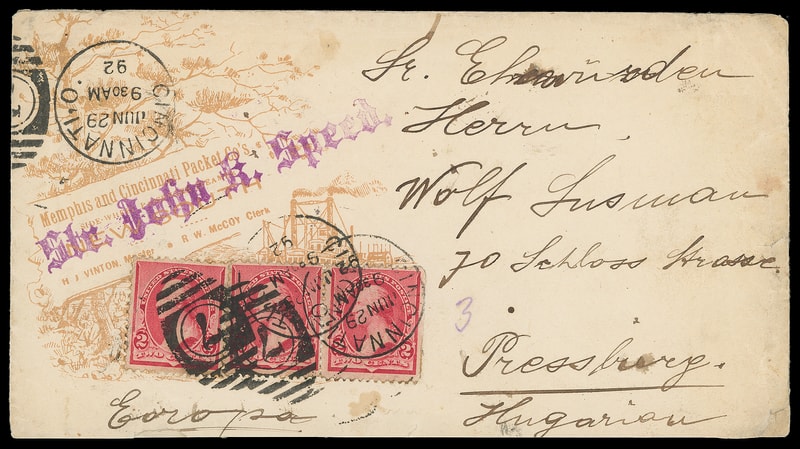 CINCINNATI, O.
JUN 29
9 30 AM
92
Memphis and Cincinnati Packet Co's.
Str. John K. Speed.
H J VINTON, Master
R. W. McCOY Clerk
Sr. Ehrwürden
Herrn
Wolf Susman
70 Schloss Strasse
Pressburg.
Hugarian
3
CINCINNATI
JUN 29
9 30 AM
92
2
2
TWO CENTS
Eoropa